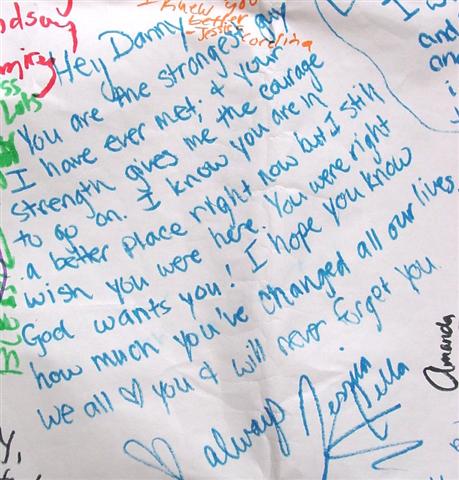 I knew you
better
- Jessica
Hey Danny
You are the strongest guy
I have ever met; & your
strength gives me the courage
to go on. I know you are in
a better place right now but I still
wish you were here. You were right
God wants you! I hope you know
how much you've changed all our lives
we all ♡ you & will never forget you.
♡ always Jessica
Amanda